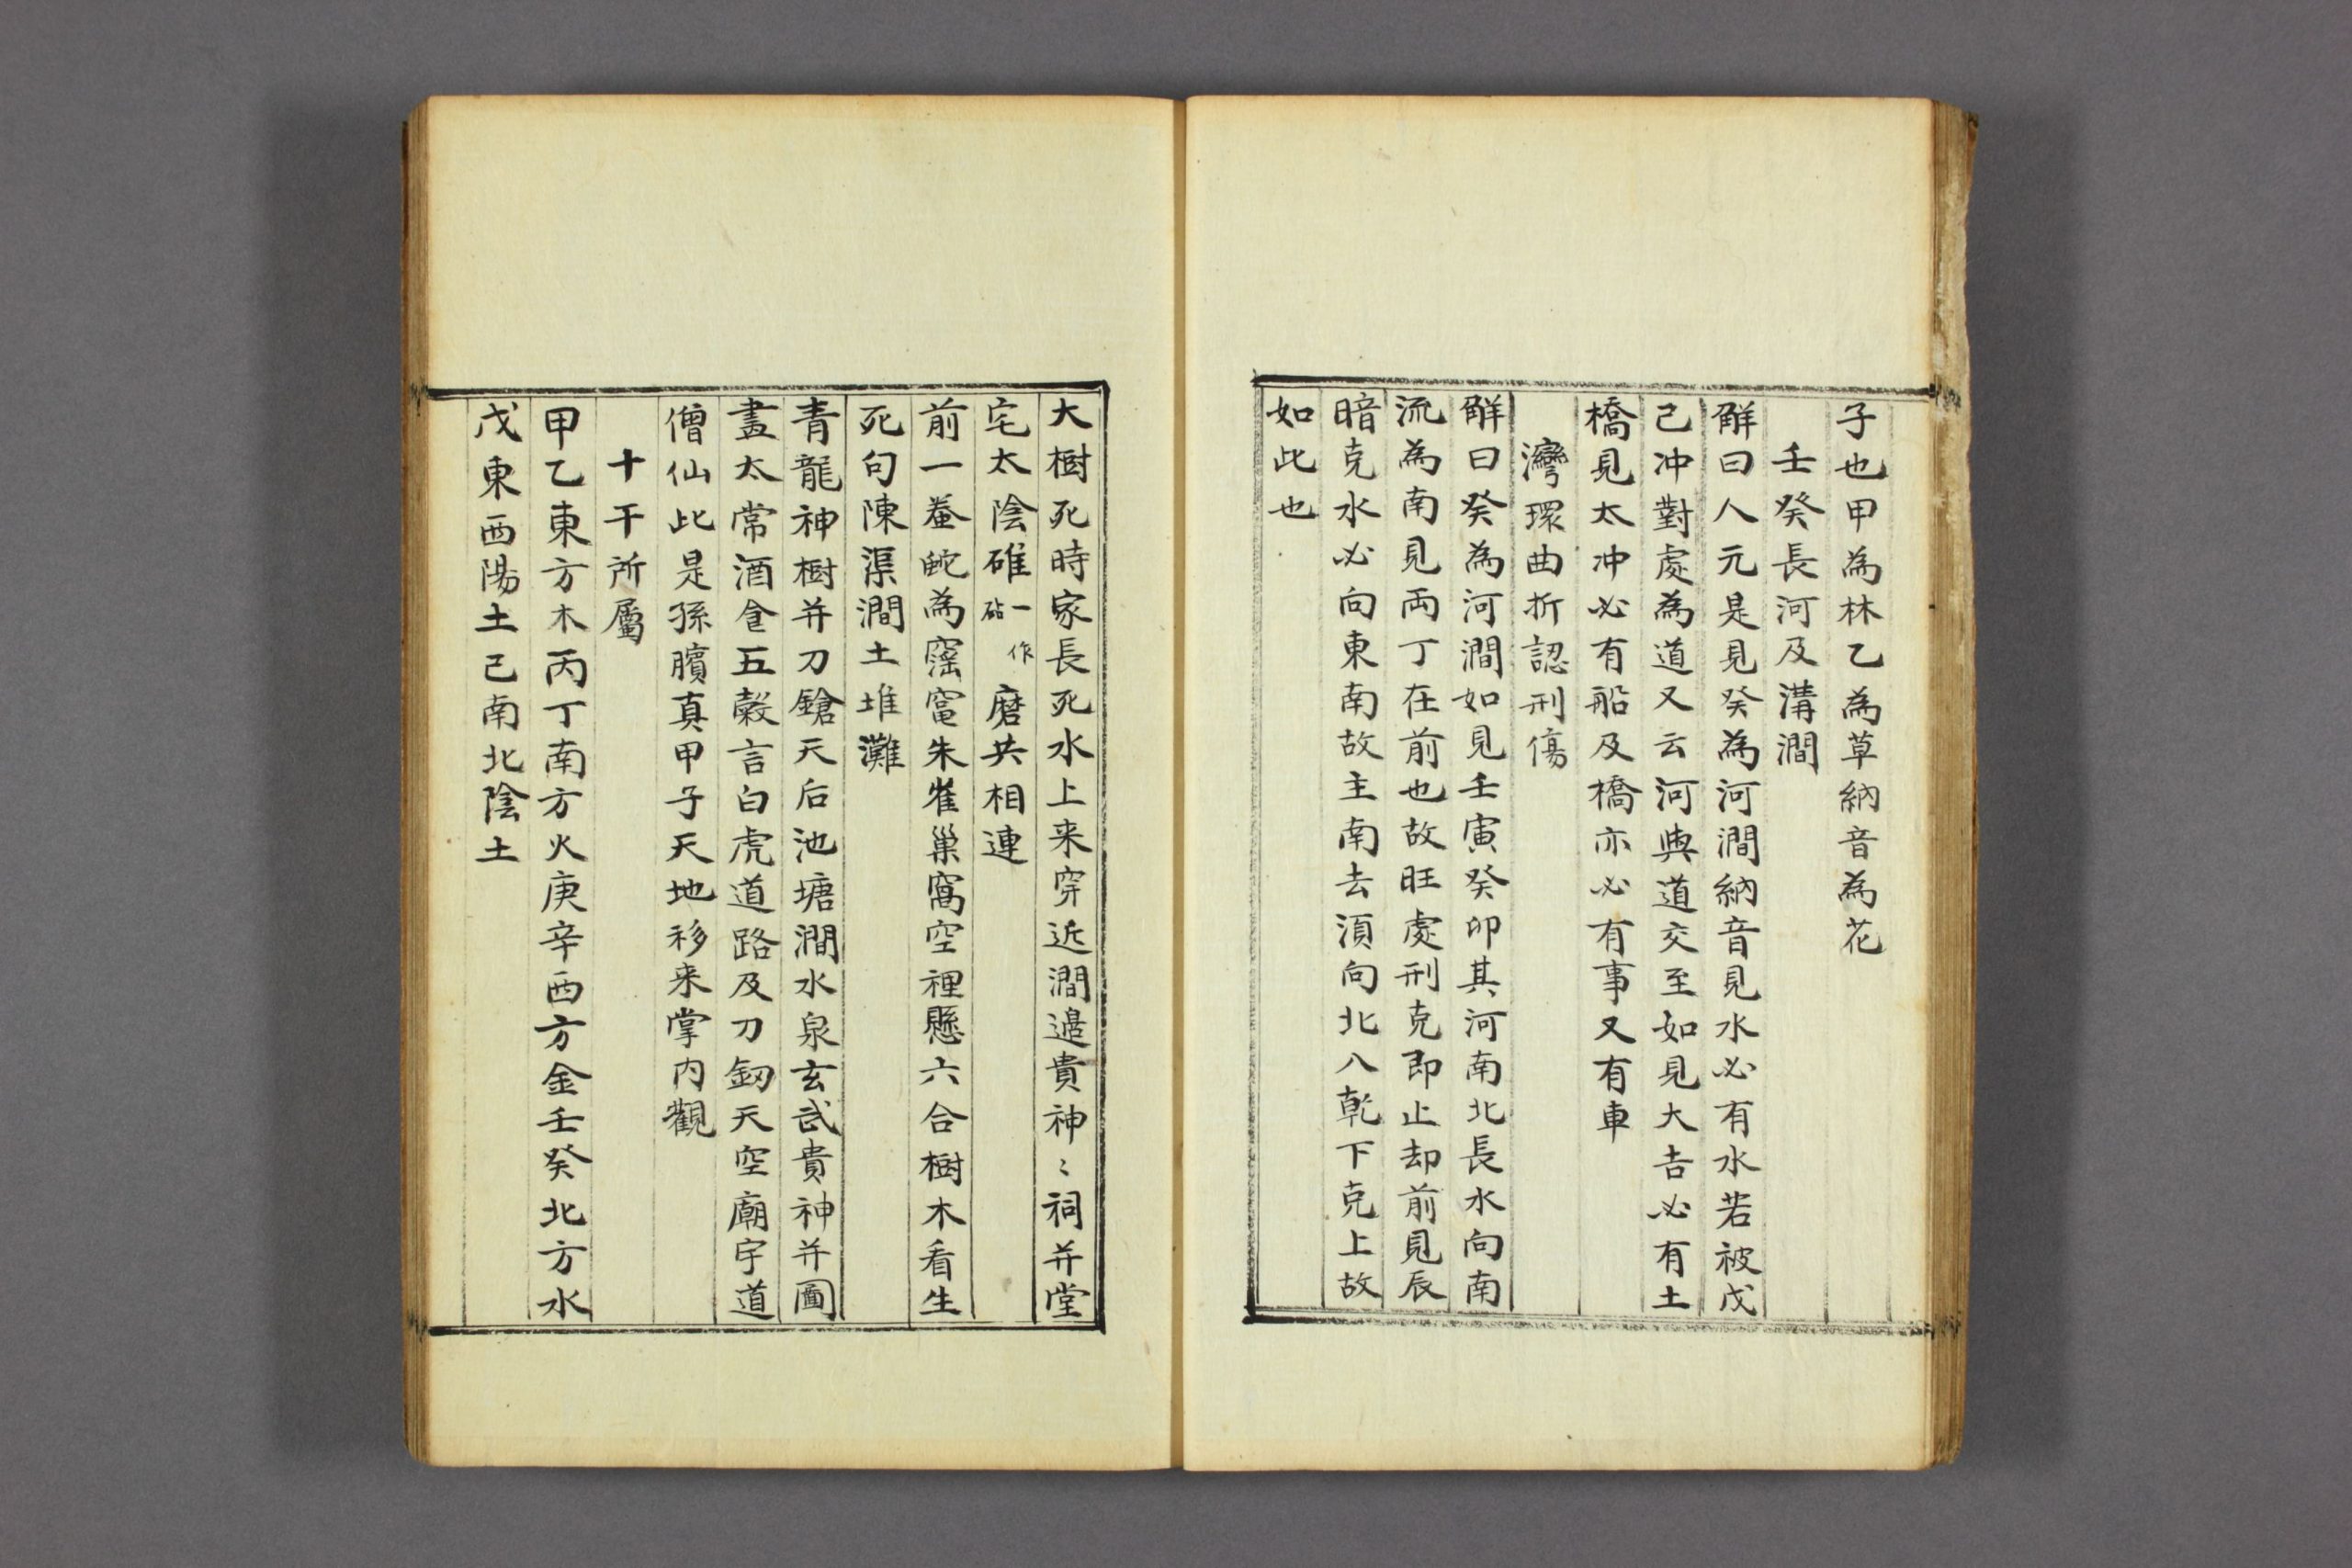 子也甲為林乙為草納音為花
壬癸長河及溝澗
解曰人元是見癸為河澗納音見水必有水若被戊
己冲對處為道又云河與道交至如見大吉必有土
橋見太冲必有船及橋亦必有事又有車
灣環曲折認刑傷
解曰癸為河澗如見壬寅癸卯其河南北長水向南
流為南見両丁在前也故旺處刑克即止却前見辰
暗克水必向東南故主南去湏向北八乾下克上故
如此也
大樹死時家長死水上来穿近澗邉貴神〻祠并堂
宅太陰碓一作砧磨共相連
前一螣蛇為窑窰朱雀巢窩空裡懸六合樹木看生
死句陳渠澗土堆灘
青龍神樹并刀鎗天后池塘澗水泉玄武貴神并圖
畫太常酒食五穀言白虎道路及刀釰天空廟宇道
僧仙此是孫臏真甲子天地移来掌内觀
十干所屬
甲乙東方木丙丁南方火庚辛西方金壬癸北方水
戊東西陽土己南北陰土